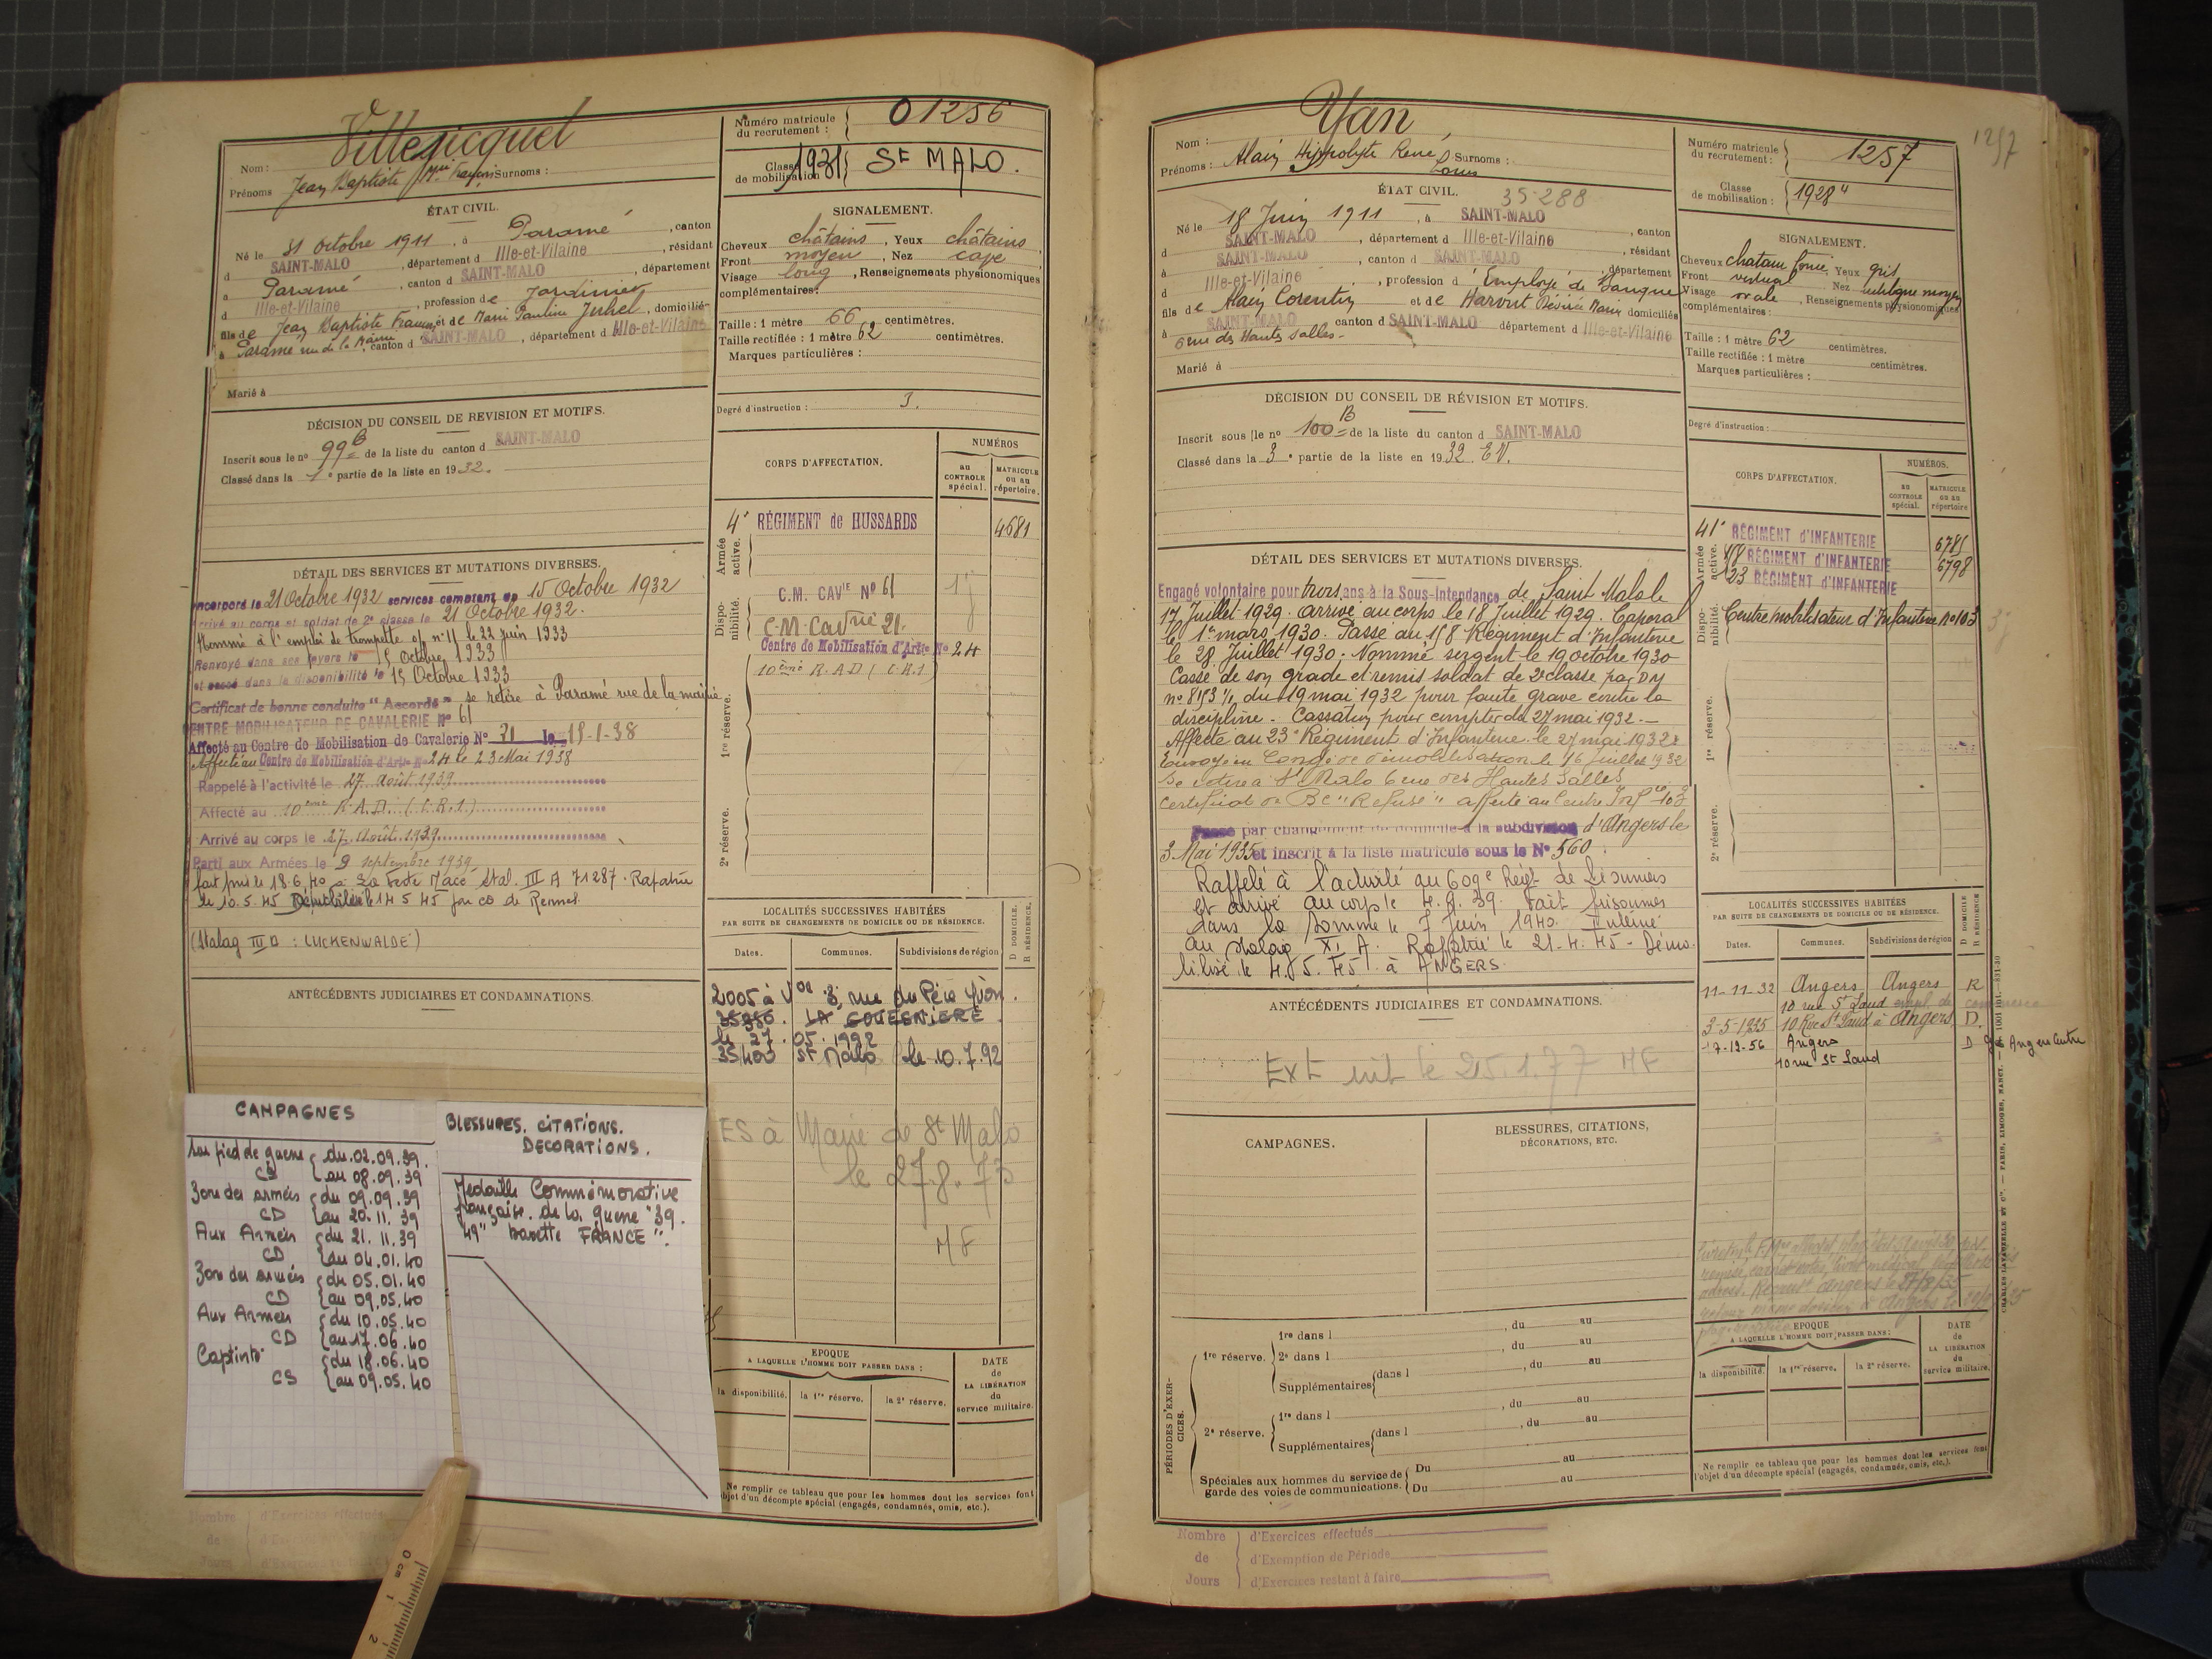 Villejicquel
Nom :
Prénoms Jean Baptiste Marie François Surnoms :
Numéro matricule du recrutement : 01256
Classe de mobilisation 1931 St MALO.
ÉTAT CIVIL.
Né le 31 Octobre 1911, à Paramé, canton
d SAINT-MALO, département d Ille-et-Vilaine, résidant
à Paramé, canton d SAINT-MALO, département
d Ille-et-Vilaine, profession de Jardinier
fils de Jean Baptiste François et de Marie Pauline Juhel, domiciliés
à Paramé rue de la Mairie, canton d SAINT-MALO, département d Ille-et-Vilaine
Marié à
SIGNALEMENT.
Cheveux châtains, Yeux châtains
Front moyen, Nez cave
Visage long, Renseignements physionomiques
complémentaires:
Taille : 1 mètre 66 centimètres.
Taille rectifiée : 1 mètre 62 centimètres.
Marques particulières :
Degré d'instruction : 3.
DÉCISION DU CONSEIL DE REVISION ET MOTIFS.
Inscrit sous le no 99 B de la liste du canton d SAINT-MALO
Classé dans la 1e partie de la liste en 1932.
CORPS D'AFFECTATION.
NUMÉROS
au CONTROLE spécial.
MATRICULE ou au répertoire.
Armée active.
4e RÉGIMENT de HUSSARDS 4681
Disponibilité.
C.M. CAVie No 61
C.M. Cavrie 21.
Centre de Mobilisation d'Artie No 24
10ème R.A.D. (C.R.1)
1re réserve.
2e réserve.
DÉTAIL DES SERVICES ET MUTATIONS DIVERSES.
Incorporé le 21 Octobre 1932 services comptant du 15 Octobre 1932
Arrivé au corps et soldat de 2e classe le 21 Octobre 1932.
Nommé à l'emploi de trompette o/ n° 11 le 22 juin 1933
Renvoyé dans ses foyers le 15 Octobre 1933
et passé dans la disponibilité le 15 Octobre 1933
Certificat de bonne conduite "Accordé" se retire à Paramé rue de la mairie
CENTRE MOBILISATEUR DE CAVALERIE No 61
Affecté au Centre de Mobilisation de Cavalerie No 21 le 15-1-38
Affecté au Centre de Mobilisation d'Artie No 24 le 23 Mai 1938
Rappelé à l'activité le 27 août 1939
Affecté au 10ème R.A.D. (C.R.1.)
Arrivé au corps le 27 Août 1939
Parti aux Armées le 9 septembre 1939
fait pris le 18.6.40 à La Ferté Macé Stal. III A 71287. Rapatrié
le 10.5.45 Démobilisé le 14 5 45 par CD de Rennes
(Stalag III A : LUCKENWALDE)
LOCALITÉS SUCCESSIVES HABITÉES
PAR SUITE DE CHANGEMENTS DE DOMICILE OU DE RÉSIDENCE.
Dates. Communes. Subdivisions de région
D DOMICILE. R RÉSIDENCE.
8, rue du Père Yvon.
35350. LA GOUESNIERE
le 27.05.1992
35400 St Malo le 10.7.92
ES à Mairie de St Malo
le 27.8.73
MF
ANTÉCÉDENTS JUDICIAIRES ET CONDAMNATIONS.
CAMPAGNES
Sur pied de guerre du 02.09.39.
CS au 08.09.39
Zone des armées du 09.09.39
CD au 20.11.39
Aux Armées du 21.11.39
CD au 04.01.40
Zone des armées du 05.01.40
CD au 09.05.40
Aux Armées du 10.05.40
CD au 17.06.40
Captivité du 18.06.40
CS au 09.05.40
BLESSURES. CITATIONS.
DECORATIONS.
Medaille Commémorative
française de la guerre "39.
49" barette FRANCE".
EPOQUE
A LAQUELLE L'HOMME DOIT PASSER DANS :
la disponibilité. la 1re réserve. la 2e réserve.
DATE de LA LIBÉRATION du service militaire.
Ne remplir ce tableau que pour les hommes dont les services font
l'objet d'un décompte spécial (engagés, condamnés, omis, etc.).
Nombre de Jours
d'Exercices effectués
0 cm 1 2
1257
Yan
Nom :
Prénoms : Alain Hippolyte René Louis Surnoms :
Numéro matricule du recrutement : 1257
Classe de mobilisation : 1928
ÉTAT CIVIL.
35-288
Né le 18 Juin 1911, à SAINT-MALO, canton
d SAINT-MALO, département d Ille-et-Vilaine, résidant
à SAINT-MALO, canton d SAINT-MALO, département
d Ille-et-Vilaine, profession d Employé de Banque
fils de Alain Corentin et de Harvut Désirée Marie domiciliés
à SAINT-MALO canton d SAINT-MALO département d Ille-et-Vilaine
6 rue des Hautes Salles.
Marié à
SIGNALEMENT.
Cheveux chatain foncé, Yeux gris
Front vertical Nez rectiligne moyen
Visage ovale, Renseignements physionomiques
complémentaires :
Taille : 1 mètre 62 centimètres.
Taille rectifiée : 1 mètre centimètres.
Marques particulières :
Degré d'instruction :
DÉCISION DU CONSEIL DE RÉVISION ET MOTIFS.
Inscrit sous le no 100 B de la liste du canton d SAINT-MALO
Classé dans la 3e partie de la liste en 1932 EV.
CORPS D'AFFECTATION.
NUMÉROS.
au CONTROLE spécial.
MATRICULE ou au répertoire
Armée active.
41e RÉGIMENT d'INFANTERIE 6785
158 RÉGIMENT d'INFANTERIE 6798
23 RÉGIMENT d'INFANTERIE
Disponibilité.
Centre mobilisateur d'Infanterie no 103
1re réserve.
2e réserve.
DÉTAIL DES SERVICES ET MUTATIONS DIVERSES.
Engagé volontaire pour trois ans à la Sous-Intendance de Saint Malo le
17 Juillet 1929. arrivé au corps le 18 Juillet 1929. Caporal
le 1er mars 1930. Passé au 158 Régiment d'Infanterie
le 28 Juillet 1930. Nommé sergent le 19 octobre 1930
Cassé de son grade et remis soldat de 2e classe par DM
no 8153 1/1 du 19 mai 1932 pour faute grave contre la
discipline. Cassation pour compter du 27 mai 1932.
Affecté au 23e Régiment d'Infanterie le 27 mai 1932
Envoyé en Congé de démobilisation le 16 juillet 1932
Se retire à St Malo 6 rue des Hautes Salles
certificat de BC "Refusé" affecté au Centre Infie 103
Passé par changement de domicile à la subdivision d'Angers le
3 Mai 1935 et inscrit à la liste matricule sous le No 560.
Rappelé à l'activité au 609e Régt de Pionniers
et arrivé au corps le 4.9.39. Fait prisonnier
dans la Somme le 7 Juin 1940. Interné
au Stalag XI A. Rapatrié le 21-4-45 - Démo
bilisé le 4.5.45 à ANGERS.
LOCALITÉS SUCCESSIVES HABITÉES
PAR SUITE DE CHANGEMENTS DE DOMICILE OU DE RÉSIDENCE.
Dates. Communes. Subdivisions de région
D DOMICILE R RÉSIDENCE
11-11-32 Angers Angers R
10 rue St Laud empl. de commerce
3-5-1935 10 Rue St Laud à Angers D.
17-12-56 Angers D Angers Centre
10 rue St Laud
ANTÉCÉDENTS JUDICIAIRES ET CONDAMNATIONS.
Ext mit le 25.1.77 MF
CAMPAGNES.
BLESSURES, CITATIONS, DÉCORATIONS, ETC.
PÉRIODES D'EXERCICES.
1re réserve. 1re dans l , du au
2e dans l , du au
Supplémentaires dans l , du au
, du au
2e réserve. 1re dans l , du au
Supplémentaires dans l , du au
Spéciales aux hommes du service de garde des voies de communications. Du au
Du au
EPOQUE
A LAQUELLE L'HOMME DOIT PASSER DANS :
la disponibilité. la 1re réserve. la 2e réserve.
DATE de LA LIBÉRATION du service militaire.
Ne remplir ce tableau que pour les hommes dont les services font
l'objet d'un décompte spécial (engagés, condamnés, omis, etc.).
CHARLES-LAVAUZELLE ET Cie. — PARIS, LIMOGES, NANCY.
Nombre de Jours
d'Exercices effectués
d'Exemption de Période
d'Exercices restant à faire